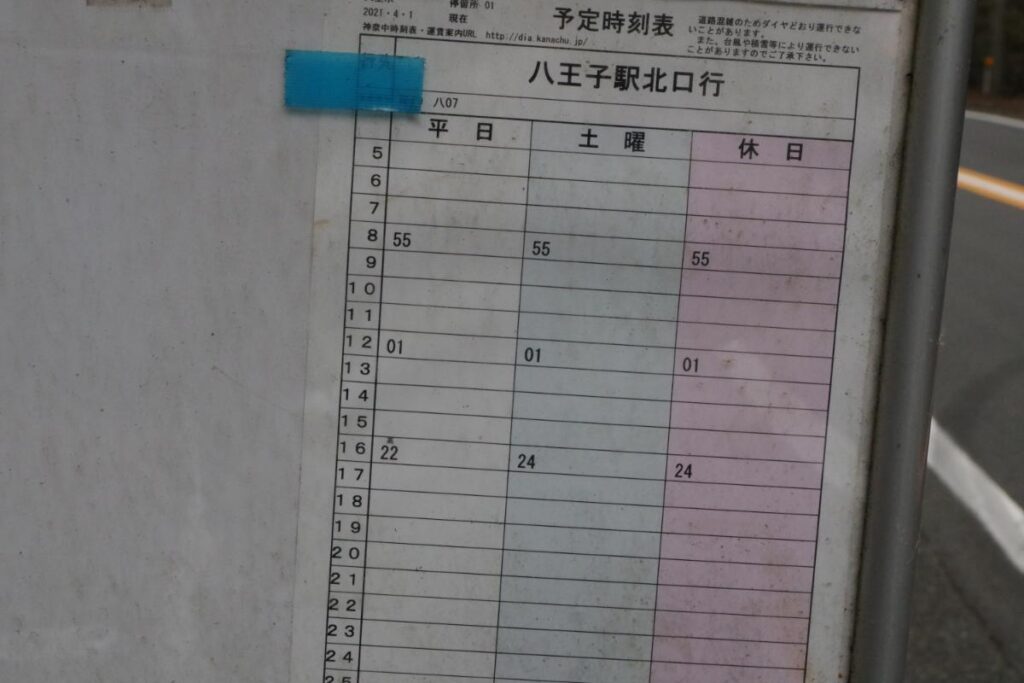 停留所 01
2021・4・1 現在
予定時刻表
神奈中時刻表・運賃案内URL http://dia.kanachu.jp/
道路混雑のためダイヤどおり運行できな
いことがあります。
また、台風や積雪等により運行できない
ことがありますのでご了承下さい。
八王子駅北口行
八07
平日 土曜 休日
5
6
7
8 55 55 55
9
10
11
12 01 01 01
13
14
15
16 22 24 24
17
18
19
20
21
22
23
24
25